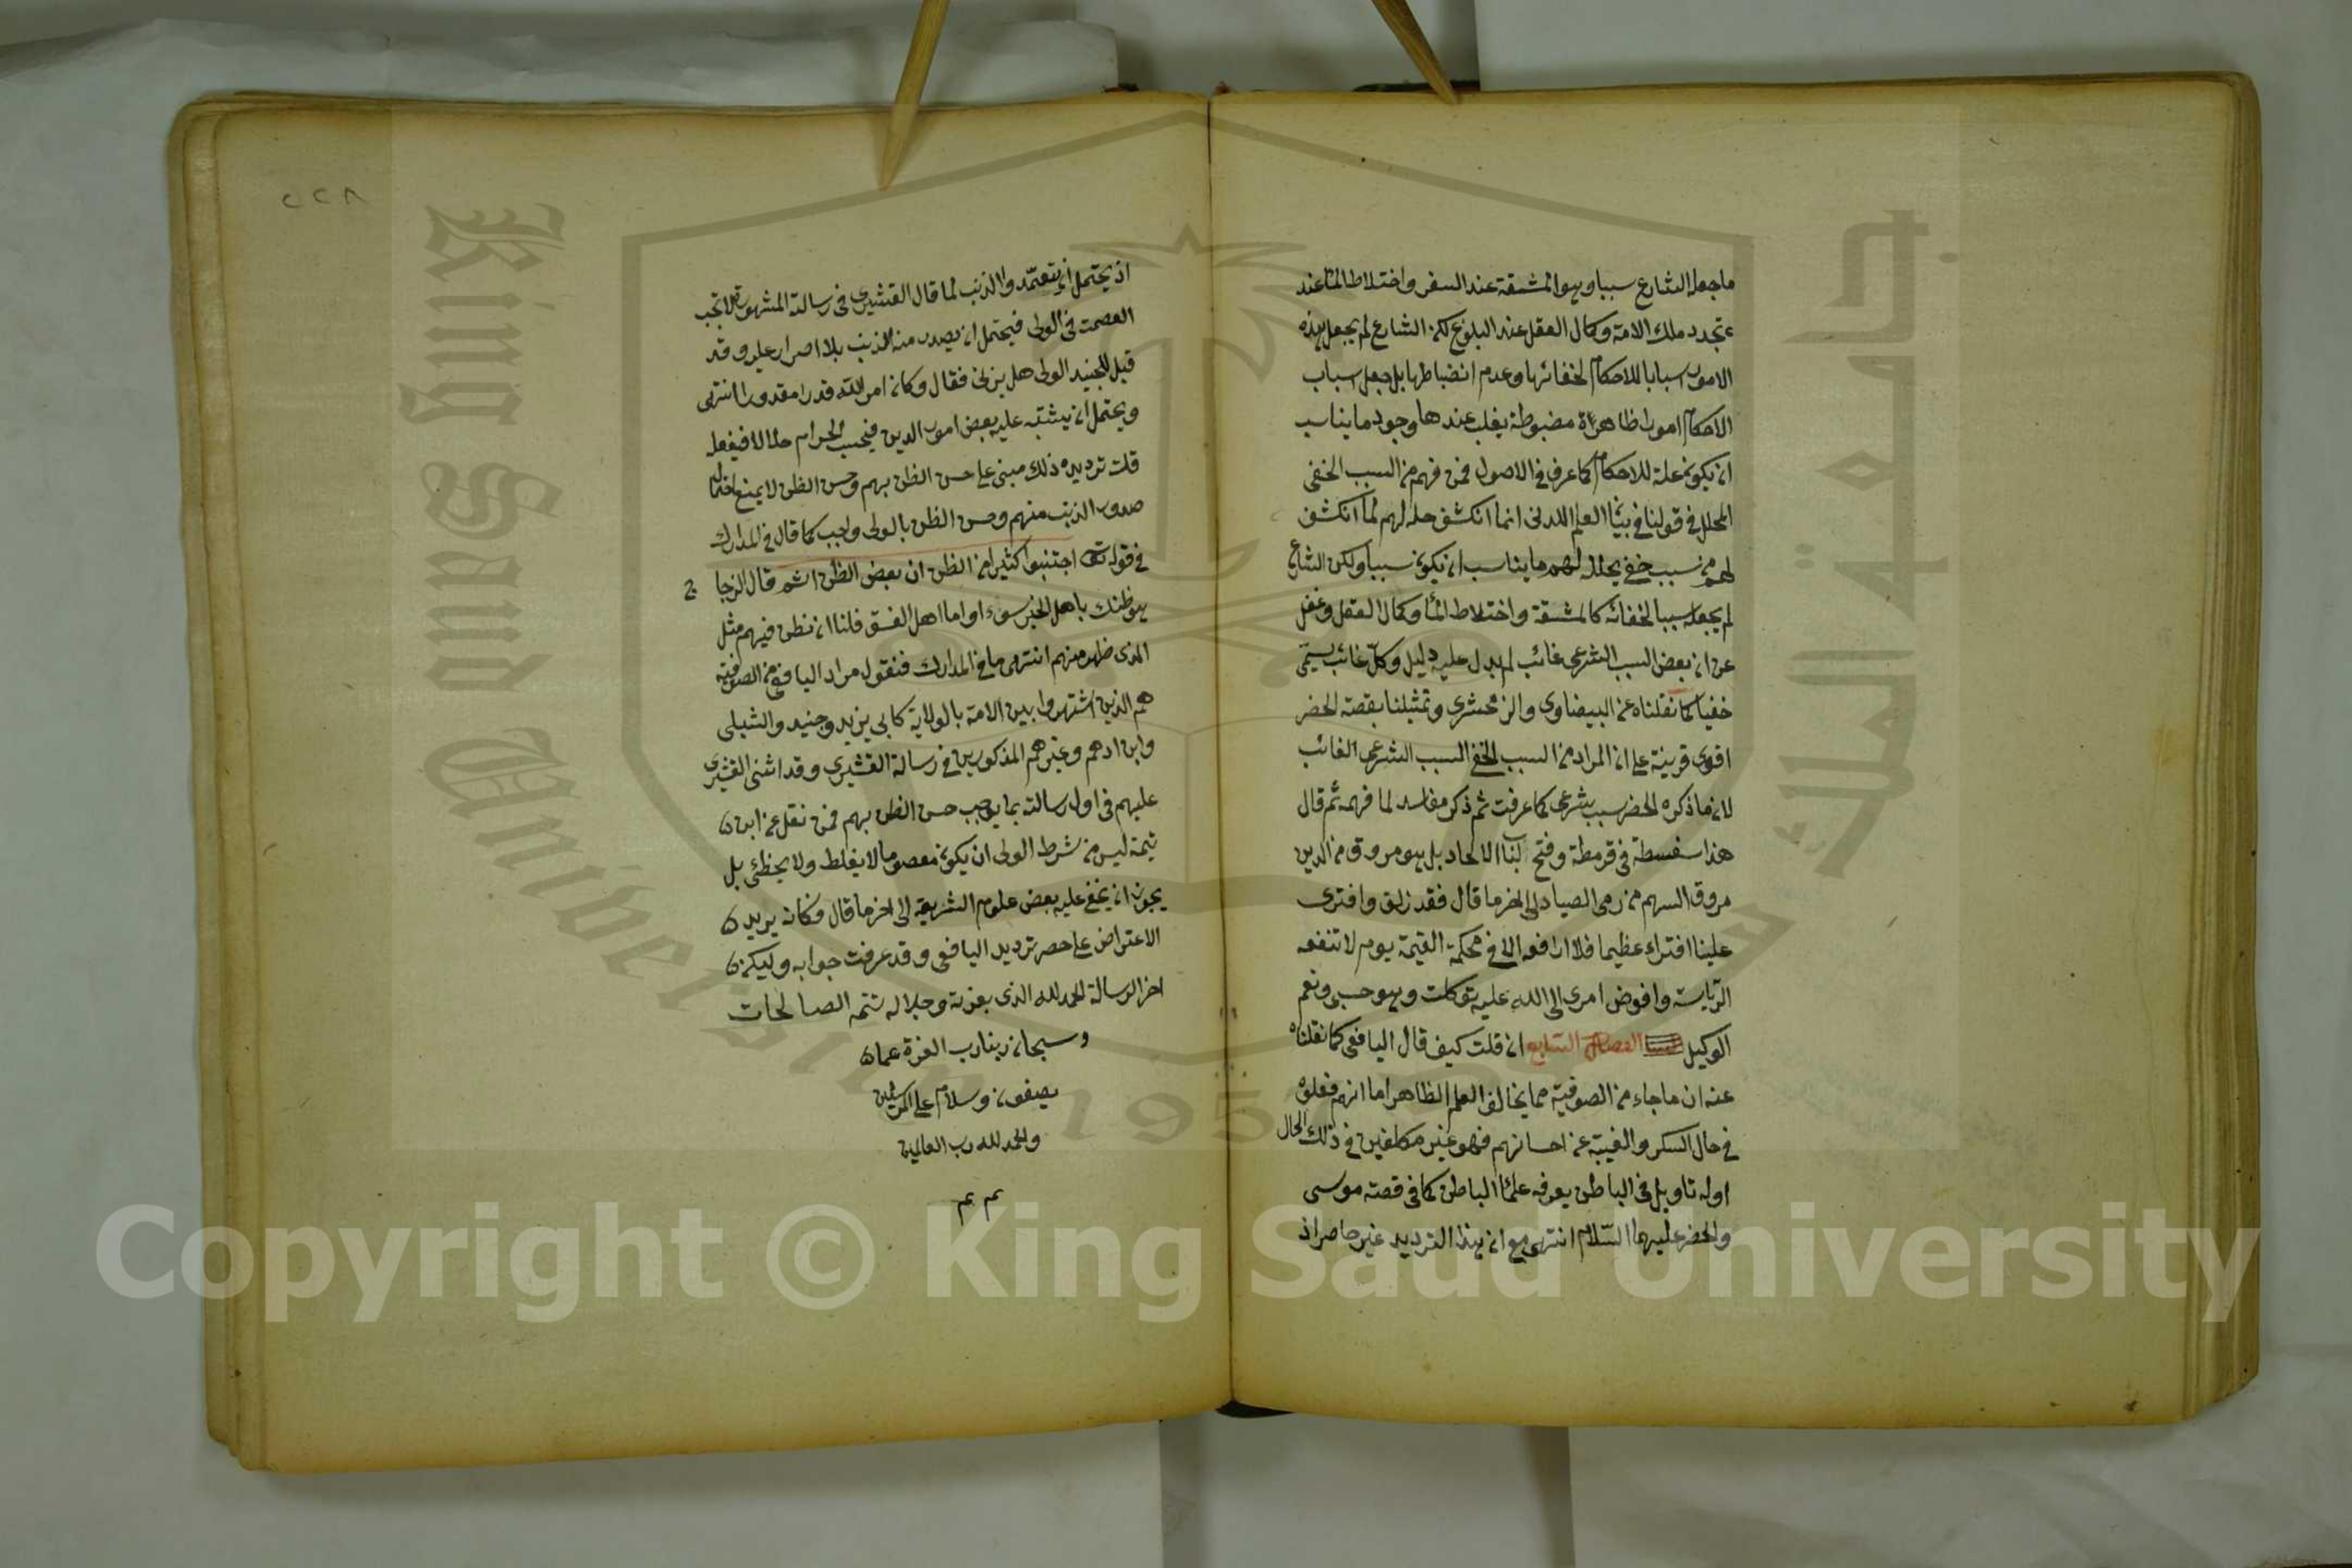 ما جعله الشارع سببا وهو المشقة عند السفر واختلاط الماء عند
تجدد ملك الامة وكمال العقل عند البلوغ لكن الشارع لم يجعل هذه
الامور اسبابا للاحكام لخفائها وعدم انضباطها بل جعل اسباب
الاحكام امورا ظاهرة مضبوطة يغلب عندها وجود ما يناسب
ان يكون علة للاحكام كما عرف في الاصول فمن فهم من السبب الخفى
المحلل في قولنا في العلم اللدنى انما انكشف حله لهم لما انكشف
لهم من سبب خفي يحلله لهم ما يناسب ان يكون سببا ولكن الشارع
لم يجعله سببا لخفائه كالمشقة واختلاط الماء وكمال العقل وغفل
عن ان بعض السبب الشرعى غائب لم يدل عليه دليل وكل غائب يسمى
خفيا كما نقلناه عن البيضاوى والزمخشرى وتمثيلنا بقصة الخضر
اقوى قرينة على ان المراد من السبب الخفي السبب الشرعى الغائب
لان ما ذكره الخضر سبب شرعى كما عرفت ثم ذكر مفاسد لما فهمه ثم قال
هذا سفسطة في قرمطة وفتح لباب الالحاد بل هو مروق من الدين
مروق السهم من رمى الصياد الى اخر ما قال فقد زلق وافترى
علينا افتراء عظيما فلا ارافعه الا في محكمة القيمة يوم لا تنفعه
الرياسة وافوض امرى الى الله عليه توكلت وهو حسبى ونعم
الوكيل الفصل السابع ان قلت كيف قال اليافعى كما نقلناه
عنه ان ما جاء من الصوفية مما يخالف العلم الظاهر اما انهم فعلوه
في حال السكر والغيبة عن احسانهم فهو غير مكلفين في ذلك الحال
او له تاويل في الباطن يعرفه علماء الباطن كما في قصة موسى
والخضر عليهما السلام انتهى مع ان هذا الترديد غير حاصر اذ
٢٢٨
اذ يحتمل ان يتعمدوا الذنب لما قال القشيرى في رسالة المشهورة لا تجب
العصمت في الولى فيحتمل ان يصدر منه الذنب بلا اصرار عليه وقد
قيل للجنيد الولى هل يزنى فقال وكان امر الله قدرا مقدورا انتهى
ويحتمل ان يشتبه عليه بعض امور الدين فيحسب الحرام حلالا فيفعله
قلت ترديده ذلك مبنى على حسن الظن بهم وحسن الظن لا يمنع احتمال
صدور الذنب منهم وحسن الظن بالولى واجب كما قال في المدارك
في قوله اجتنبوا كثيرا من الظن ان بعض الظن اثم قال الزجاج
هو ظنك باهل الخير سوءا واما اهل الفسق فلنا ان نظن فيهم مثل
الذى ظهر منهم انتهى ما في المدارك فنقول مراد اليافعى من الصوفية
هم الذين اشتهروا بين الامة بالولاية كابى يزيد وجنيد والشبلى
وابن ادهم وغيرهم المذكورين في رسالة القشيرى وقد اثنى القشيرى
عليهم في اول رسالته بما يوجب حسن الظن بهم فمن نقل عن ابن
تيمة ليس من شرط الولى ان يكون معصوما لا يغلط ولا يخطئ بل
يجوز ان يخفى عليه بعض علوم الشريعة الى اخر ما قال فكانه يريد
الاعتراض على حصر ترديد اليافعى وقد عرفت جوابه وليكن
اخر الرسالة الحمد لله الذى بعزته وجلاله تتم الصالحات
وسبحان ربنا رب العزة عما
يصفون وسلام على المرسلين
والحمد لله رب العالمين
م م
King Saud University
1957
جامعة الملك سعود
Copyright © King Saud University